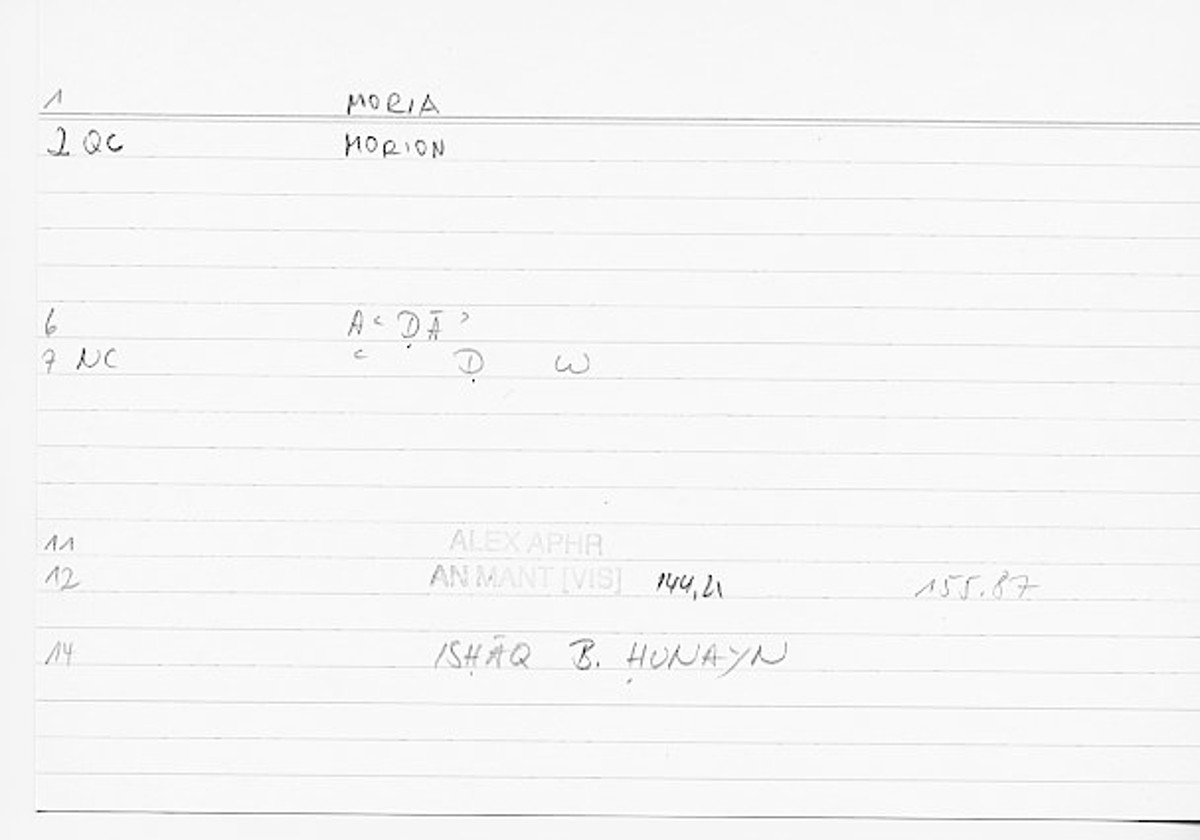 1 MORIA
2 QC MORION
6 Aʿ ḌĀʾ
7 NC ʿ Ḍ W
11 ALEX APHR
12 AN MANT [VIS] 144,21 155.87
14 ISḤĀQ B. ḤUNAYN